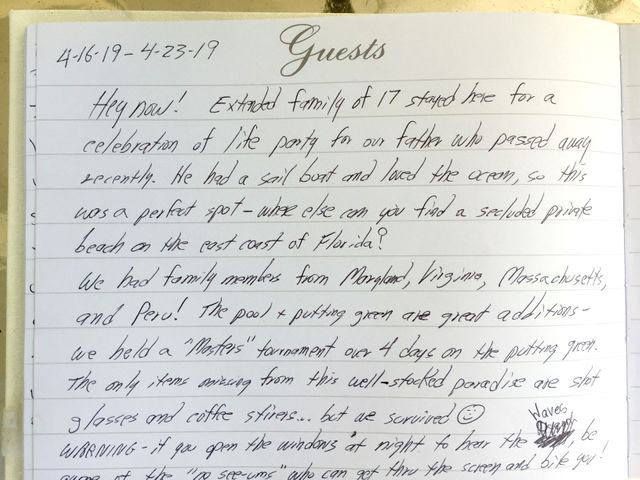 4-16-19 - 4-23-19
Guests
Hey now! Extended family of 17 stayed here for a
celebration of life party for our father who passed away
recently. He had a sail boat and loved the ocean, so this
was a perfect spot - where else can you find a secluded private
beach on the east coast of Florida?
We had family members from Maryland, Virginia, Massachusetts,
and Peru! The pool + putting green are great additions -
we held a "Masters" tournament over 4 days on the putting green.
The only items missing from this well-stocked paradise are shot
glasses and coffee stirrers... but we survived ☺
WARNING - if you open the windows at night to hear the waves, be
aware of the "no see-ums" who can get thru the screen and bite you!